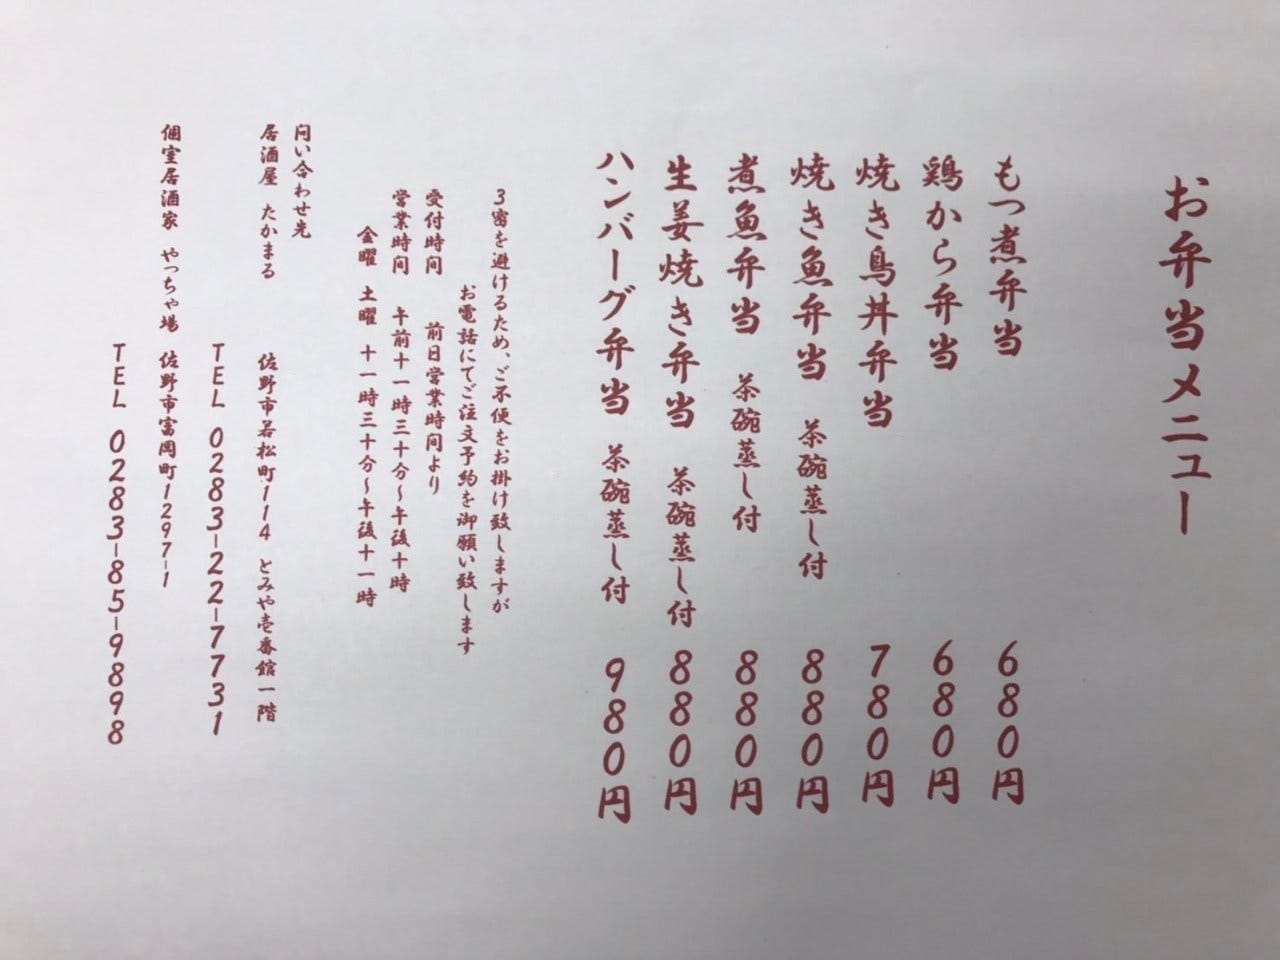 お弁当メニュー
もつ煮弁当 680円
鶏から弁当 680円
焼き鳥丼弁当 780円
焼き魚弁当 茶碗蒸し付 880円
煮魚弁当 茶碗蒸し付 880円
生姜焼き弁当 茶碗蒸し付 880円
ハンバーグ弁当 茶碗蒸し付 980円
3密を避けるため、ご不便をお掛け致しますが
お電話にてご注文予約を御願い致します
受付時間 前日営業時間より
営業時間 午前十一時三十分〜午後十時
金曜 土曜 十一時三十分〜午後十一時
問い合わせ先
居酒屋 たかまる 佐野市若松町114 とみや壱番館一階
TEL 0283-22-7731
個室居酒家 やっちゃ場 佐野市富岡町1297-1
TEL 0283-85-9898